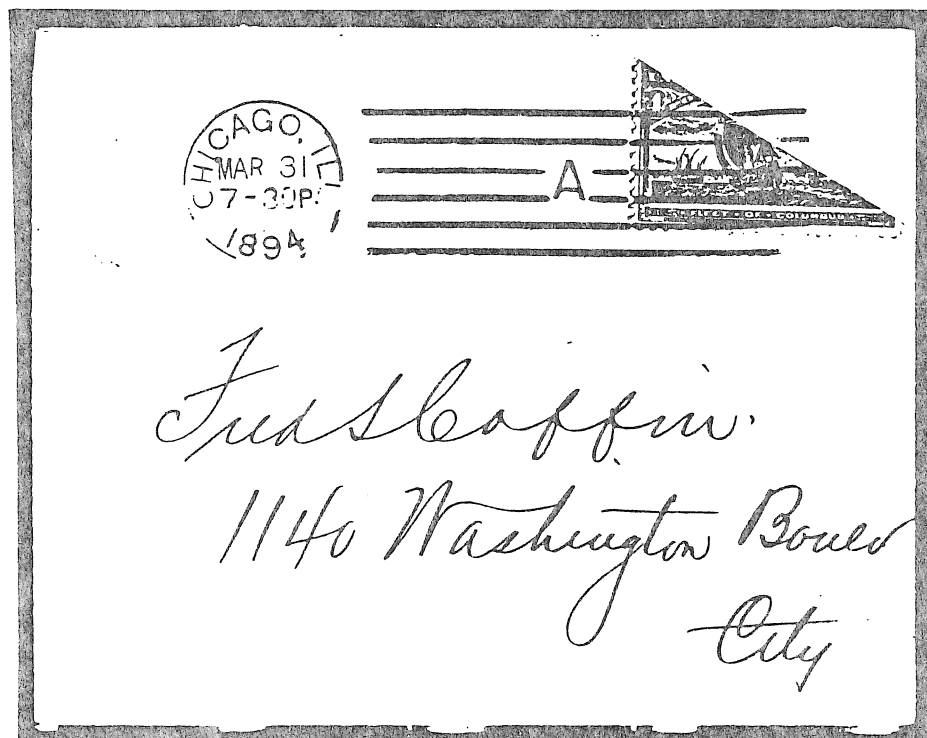 CHICAGO, ILL.
MAR 31
7-30P.
1894.
A
FLEET · OF · COLUMBUS
Fred S Coffin.
1140 Washington Boulev
City